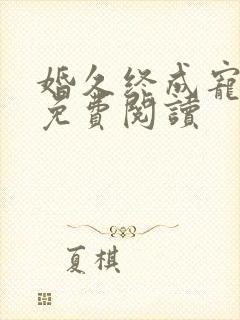 婚久终成寵
免費閱讀
夏棋